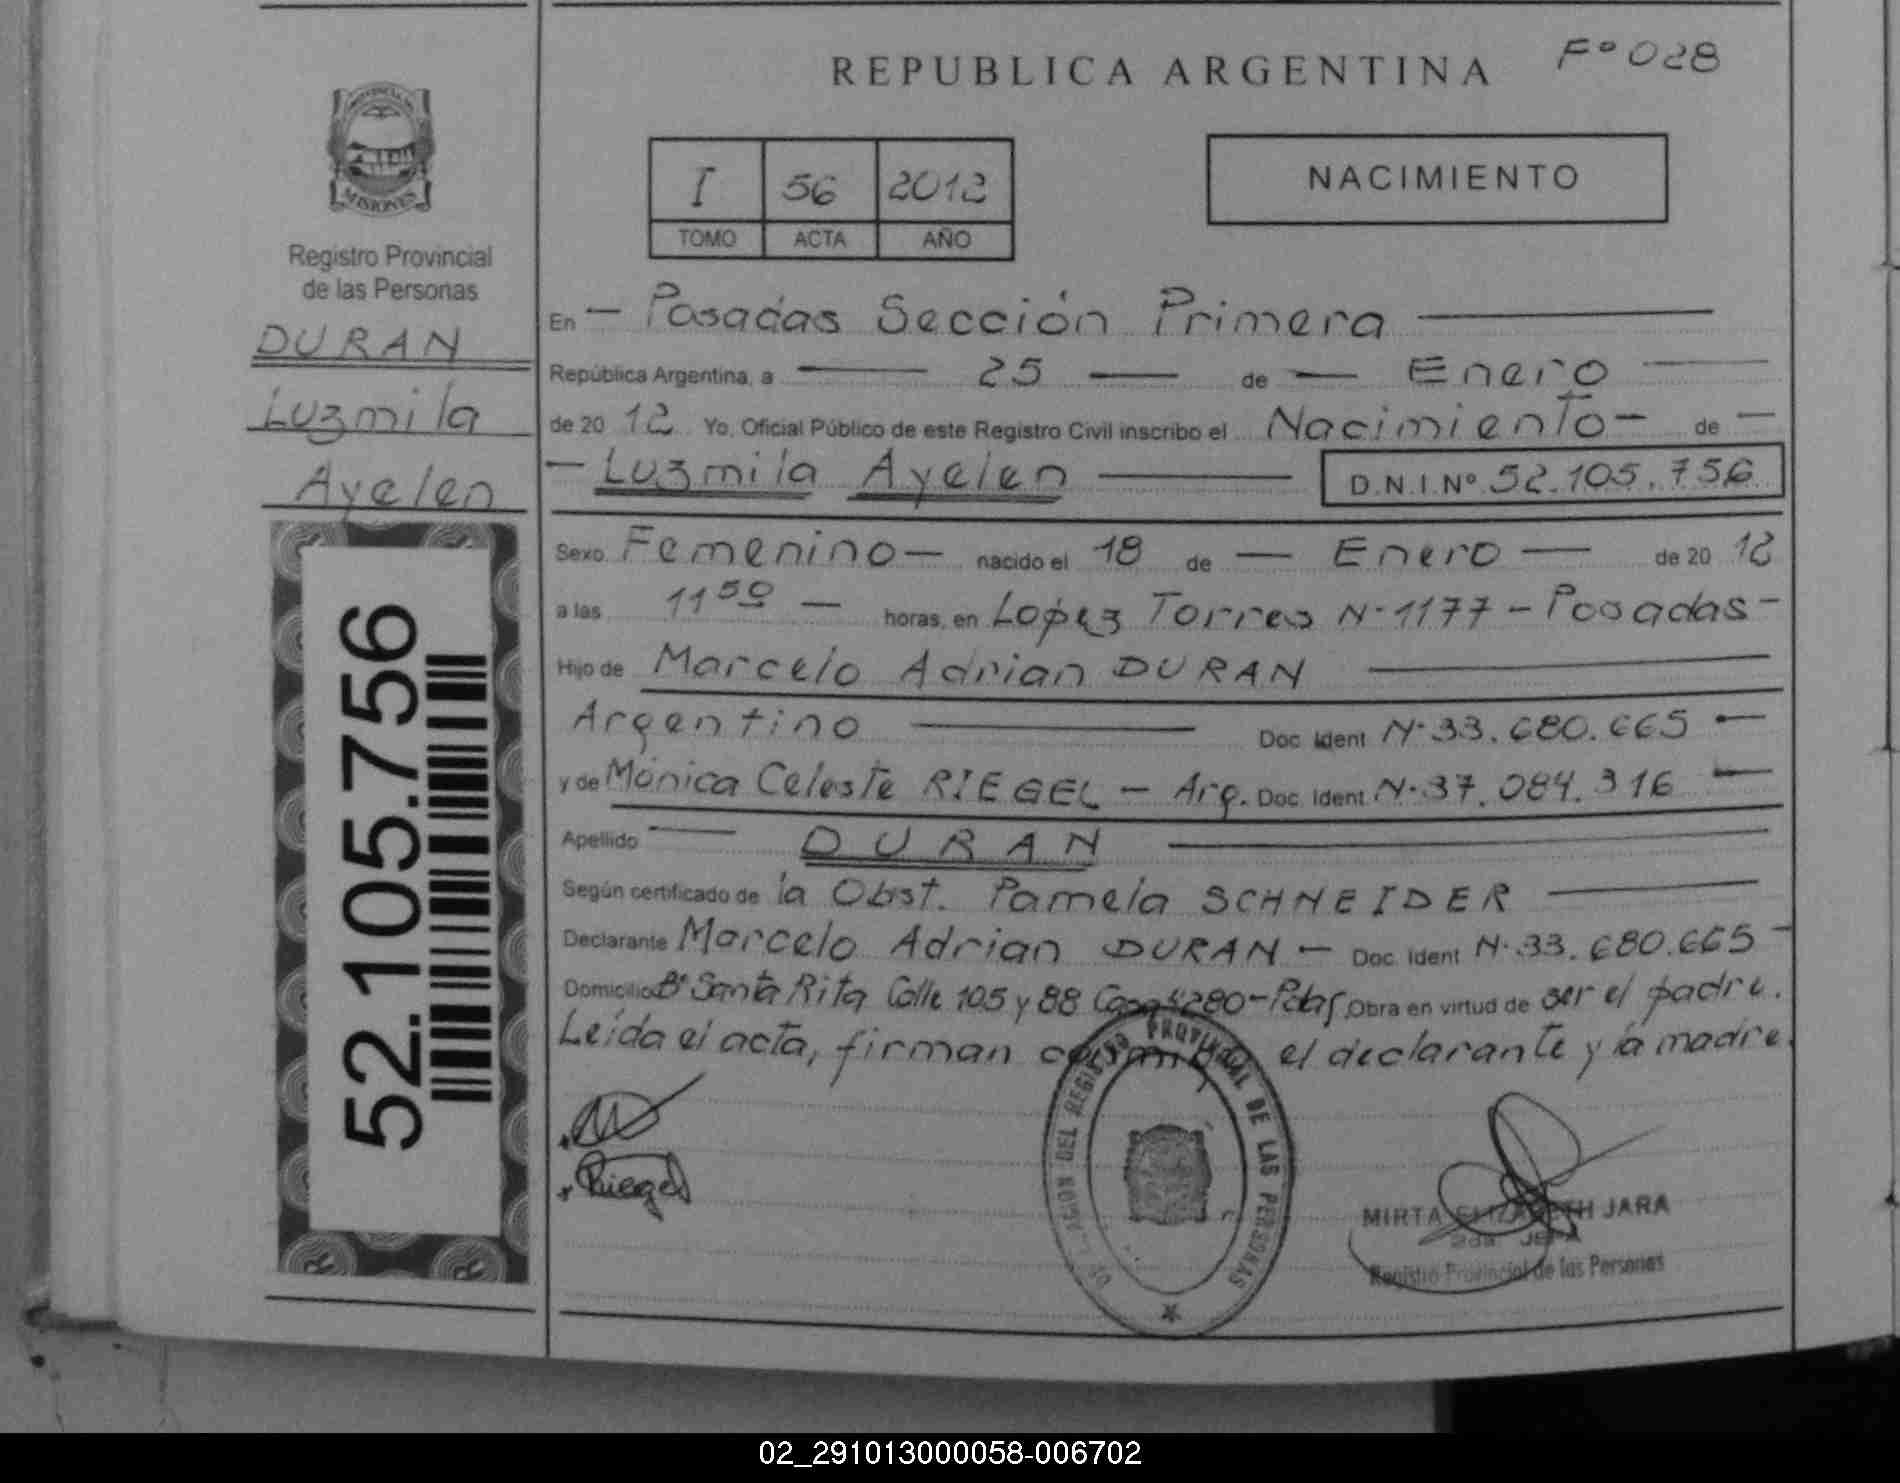 REPUBLICA ARGENTINA
Fº 028
PROVINCIA DE
MISIONES
Registro Provincial
de las Personas
DURAN
Luzmila
Ayelen
52.105.756
I 56 2012
TOMO ACTA AÑO
NACIMIENTO
En — Posadas Sección Primera —
República Argentina, a — 25 — de — Enero —
de 20 12 Yo, Oficial Público de este Registro Civil inscribo el Nacimiento — de —
— Luzmila Ayelen — D.N.I.Nº 52.105.756
Sexo Femenino — nacido el 18 de — Enero — de 20 12
a las 11 50 — horas, en López Torres N- 1177 - Posadas -
Hijo de Marcelo Adrian DURAN —
Argentino — Doc. Ident. N- 33.680.665 —
y de Mónica Celeste RIEGEL — Arg. Doc. Ident. N- 37.084.316 —
Apellido — DURAN —
Según certificado de la Obst. Pamela SCHNEIDER —
Declarante Marcelo Adrian DURAN — Doc. Ident. N- 33.680.665 -
Domicilio Bº Santa Rita Calle 105 y 88 Casa 4280 - Pdas. Obra en virtud de ser el padre.
Leída el acta, firman conmigo el declarante y la madre.
Riegel
DEL REGISTRO PROVINCIAL DE LAS PERSONAS
MIRTA ELIZABETH JARA
2da. JEFA
Registro Provincial de las Personas
02_291013000058-006702